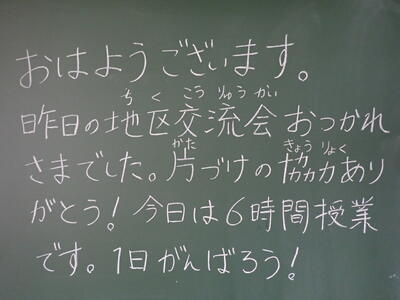 おはようございます。
ちくこうりゅうかい
昨日の地区交流会おつかれ
かた きょうりょく
さまでした。片づけの協力あり
がとう！今日は6時間授業
です。1日がんばろう！